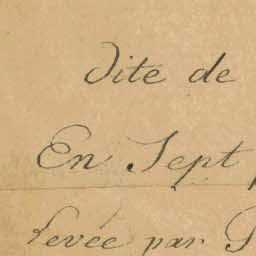 dite de
En Sept
levée par